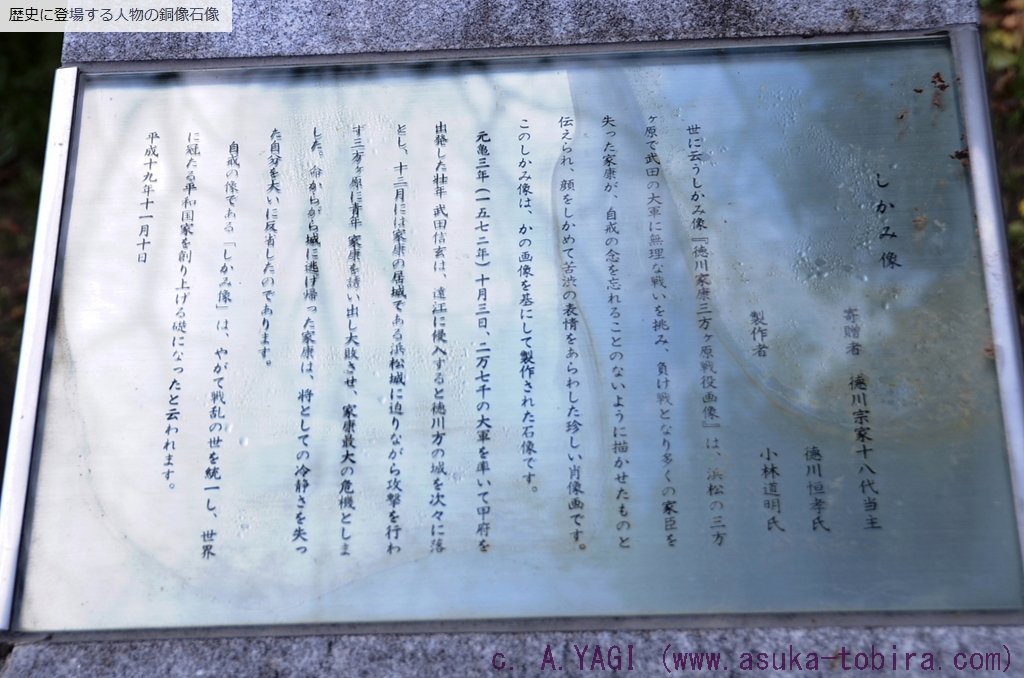 歴史に登場する人物の銅像石像
しかみ像
寄贈者 徳川宗家十八代当主
徳川恒孝氏
製作者 小林道明氏
世に云うしかみ像『徳川家康三方ヶ原戦役画像』は、浜松の三方
ヶ原で武田の大軍に無理な戦いを挑み、負け戦となり多くの家臣を
失った家康が、自戒の念を忘れることのないように描かせたものと
伝えられ、顔をしかめて苦渋の表情をあらわした珍しい肖像画です。
このしかみ像は、かの画像を基にして製作された石像です。
元亀三年(一五七二年)十月三日、二万七千の大軍を率いて甲府を
出発した壮年 武田信玄は、遠江に侵入すると徳川方の城を次々に落
とし、十二月には家康の居城である浜松城に迫りながら攻撃を行わ
ず三方ヶ原に青年 家康を誘い出し大敗させ、家康最大の危機としま
した。命からがら城に逃げ帰った家康は、将としての冷静さを失っ
た自分を大いに反省したのであります。
自戒の像である「しかみ像」は、やがて戦乱の世を統一し、世界
に冠たる平和国家を創り上げる礎になったと云われます。
平成十九年十一月十日
c. A.YAGI (www.asuka-tobira.com)